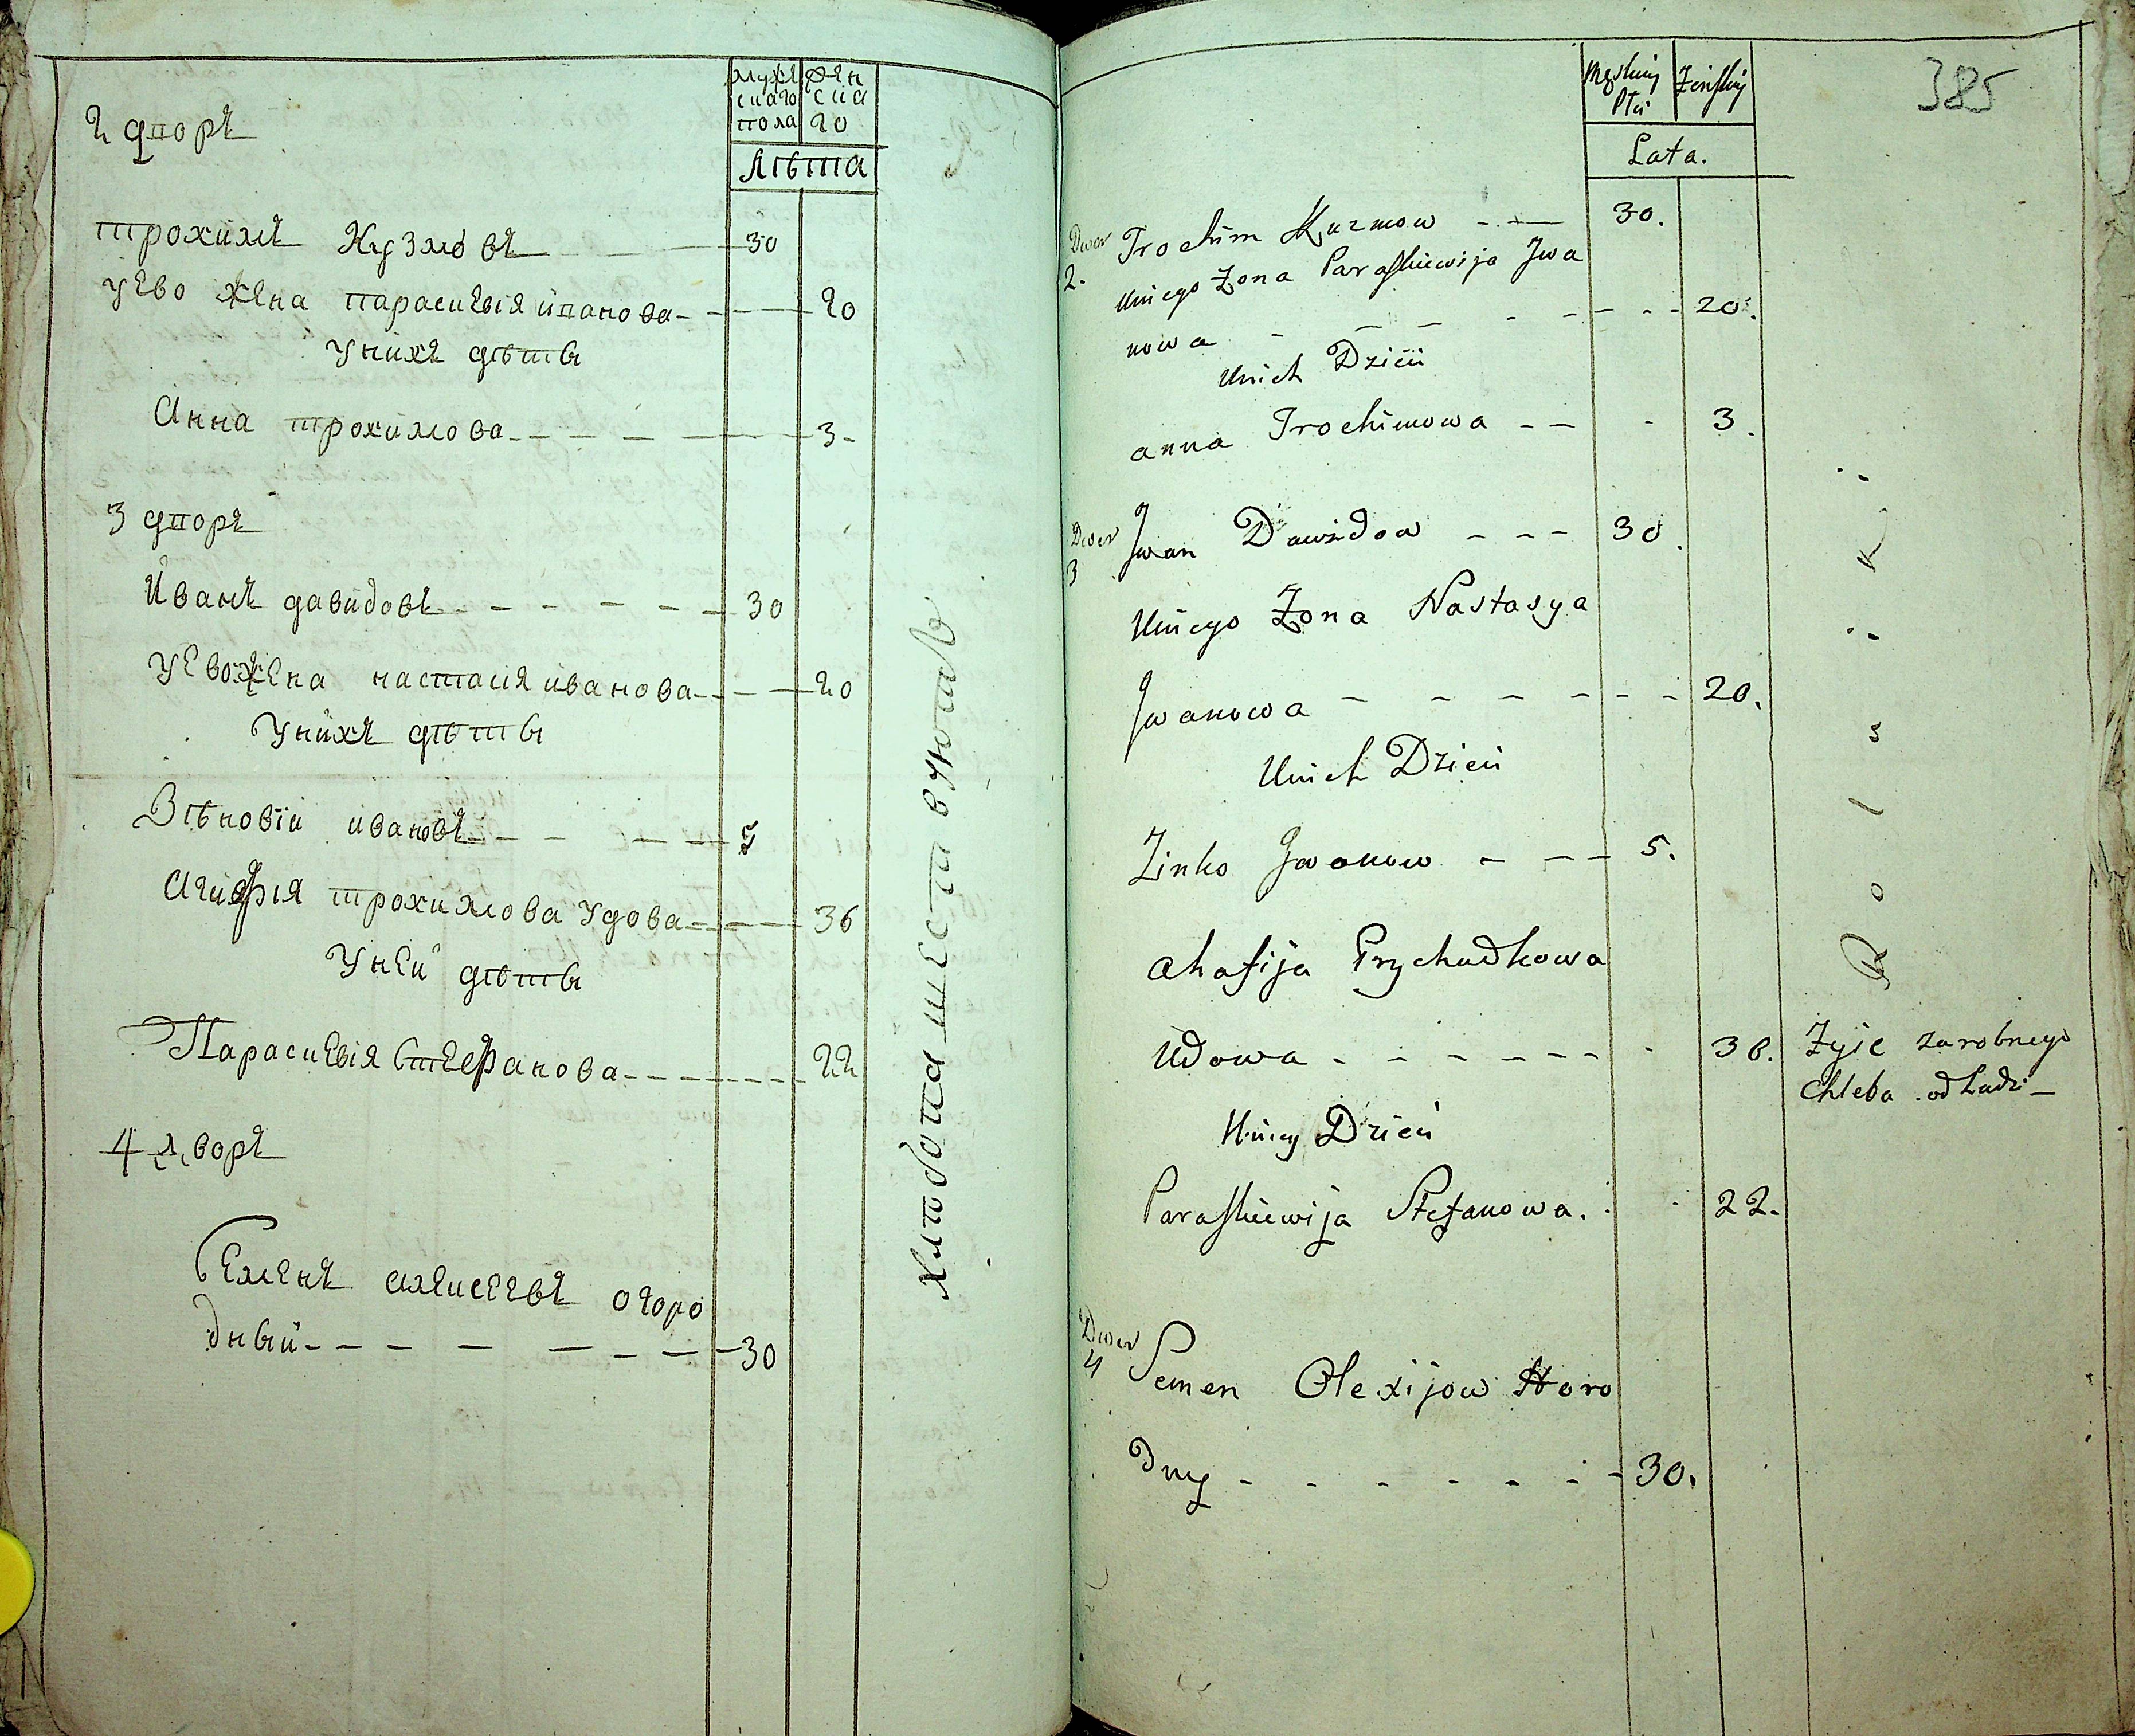 мужѣ
скаго
пола
жѣн
ска
го
лѣта
2 дворъ
трохимъ Кузмовъ 30
уево жена параскевія иванова 20
Унихъ дѣти
Анна трохимова 3
3 дворъ
Иванъ давидовъ 30
уево жена настасия иванова 20
Унихъ дѣти
Зѣновій ивановъ 5
Агафия трохимова удова 36
Уней дѣти
Параскевія Стефанова 22
4 дворъ
Семенъ алексеевъ огоро
дный 30
хлѣбопашества внютъ
385
Męskiey Płci
Żeńskiey
Lata.
Dwor 2. Trochim Kuzmow 30.
Uniego Żona Paraskiewija Iwa
nowa 20.
Unich Dzieci
anna Trochimowa 3.
Dwor 3 Iwan Dawidow 30.
Uniego Żona Nastasya
Iwanowa 20.
Unich Dzieci
Zinko Iwanow 5.
ahafija Prychodkowa
Udowa 36. Żyie zarobnego
Chleba od Ludzi
Uniey Dzieci
Paraskiewija Stefanowa. 22.
Dwor 4 Semen Olexijow Horo
dny 30.